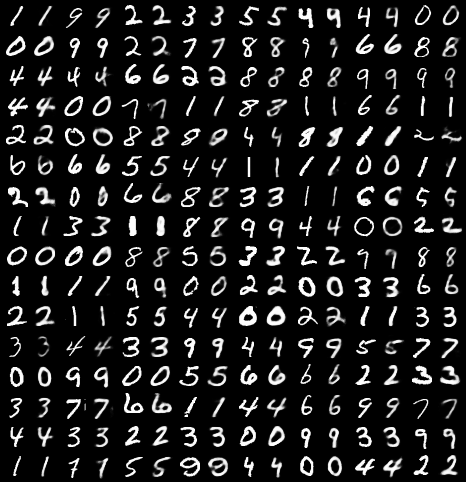 1 1 9 9 2 2 3 3 5 5 4 9 4 4 0 0
0 0 9 9 2 2 7 7 8 8 9 9 6 6 8 8
4 4 4 4 6 6 2 2 8 8 8 8 9 9 9 9
4 4 0 0 7 7 1 1 8 3 1 1 6 6 1 1
2 2 0 0 8 8 8 9 4 4 8 8 1 1 2 2
6 6 6 6 5 5 4 4 1 1 1 1 0 0 1 1
2 2 0 0 6 6 8 8 3 3 1 1 6 6 5 5
1 1 3 3 1 1 8 8 9 9 4 4 0 0 2 2
0 0 0 0 8 8 5 5 3 3 2 2 9 9 8 8
1 1 1 1 9 9 0 0 2 2 0 0 3 3 6 6
2 2 1 1 5 5 4 4 0 0 2 2 1 1 3 3
3 3 4 4 3 3 9 9 4 4 9 9 5 5 7 7
0 0 9 9 0 0 5 5 6 6 6 6 2 2 3 3
3 3 7 7 6 6 1 1 4 4 6 6 9 9 7 7
4 4 3 3 2 2 3 3 0 0 9 9 3 3 9 9
1 1 7 7 5 5 9 9 4 4 0 0 4 4 2 2